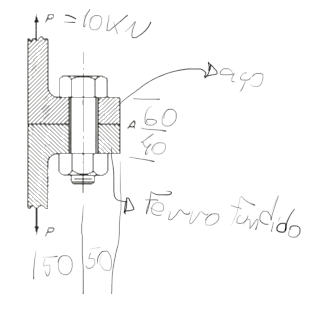 P = 10KN
aço
60
A
40
Ferro Fundido
P
150 50